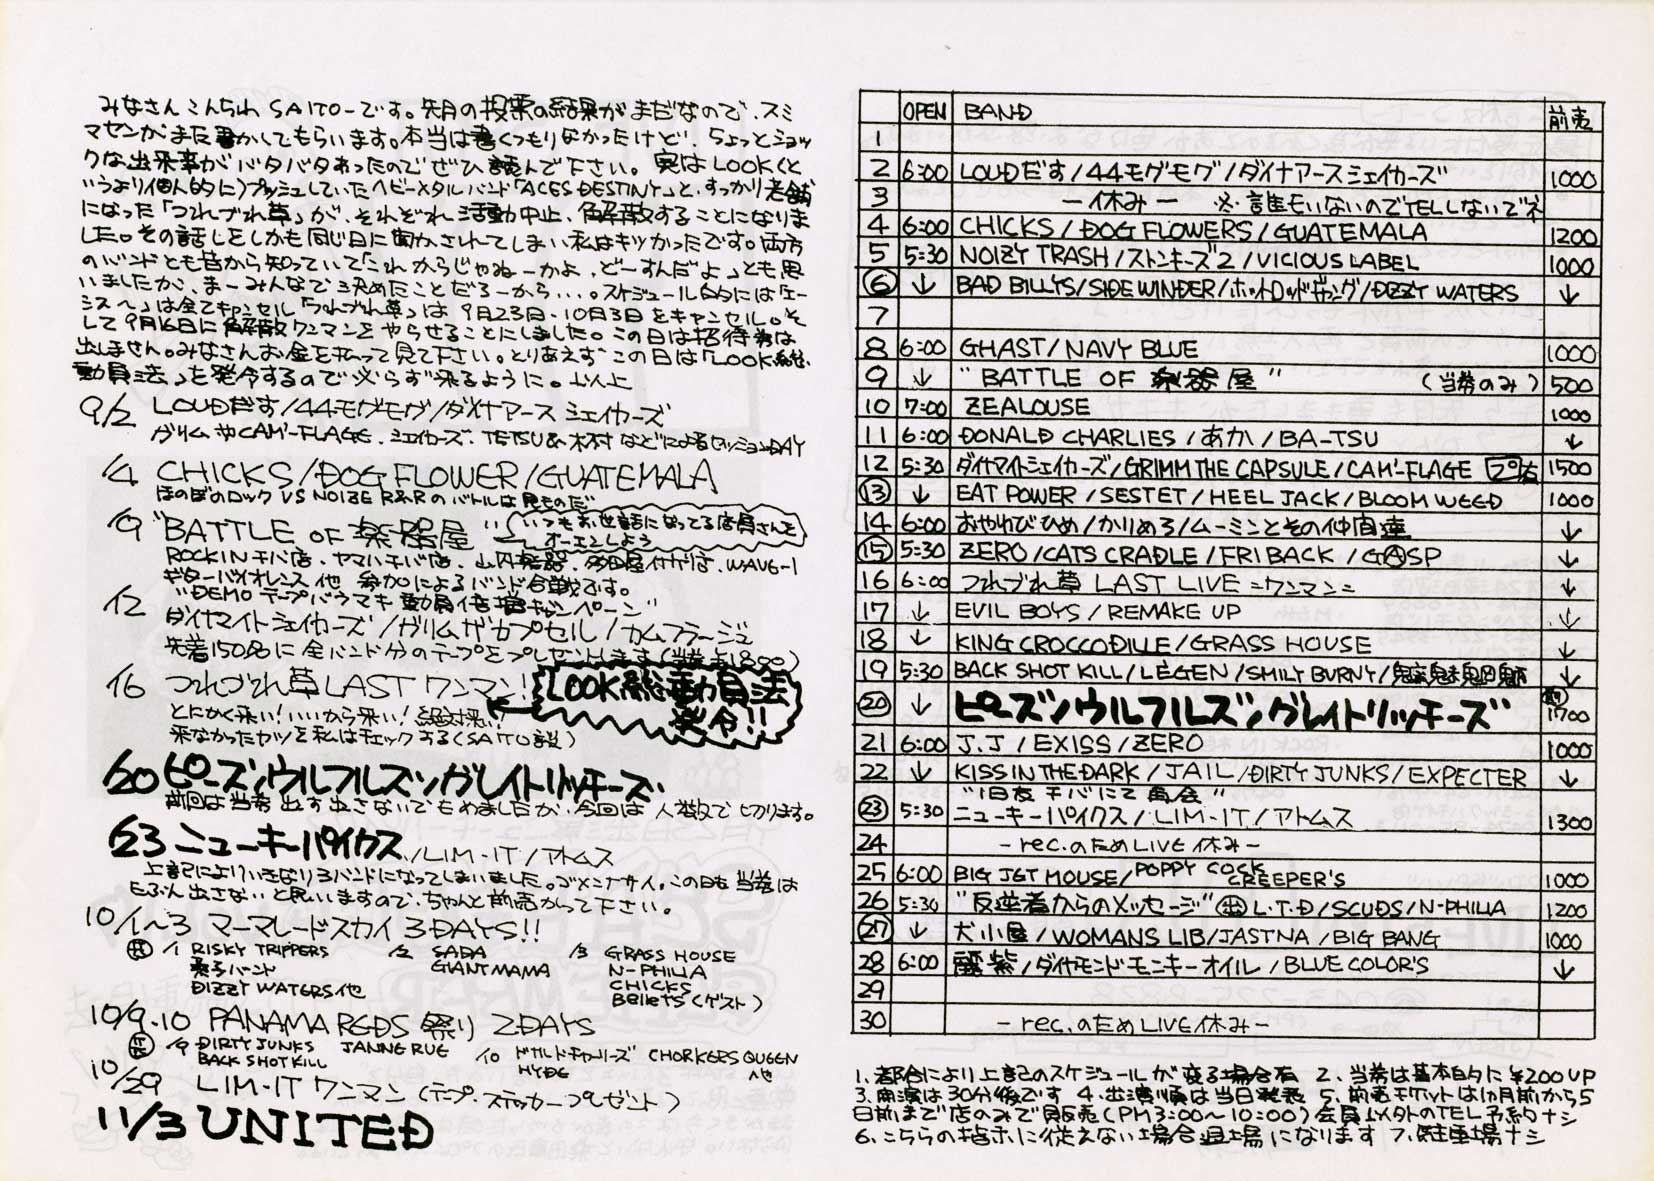 みなさんこんちわ SAITOーです。先月の投票の結果がまだなので、スミ
マセンがまた書かしてもらいます。本当は書くつもりなかったけど、ちょっとショッ
クな出来事がバタバタあったのでぜひ読んで下さい。実はLOOK(と
いうより個人的に)プッシュしていたヘビーメタルバンド「ACES DESTINY」と、すっかり老舗
になった「つれづれ草」が、それぞれ活動中止、解散することになりま
した。その話しをしかも同じ日に聞かされてしまい私はキツかったです。両方
のバンドとも昔から知っていて「これからじゃねーかよ、どーすんだよ」とも思
いましたが、まーみんなで決めたことだろーから…。スケジュール的には「エー
シス〜」は全てキャンセル「つれづれ草」は9月23日・10月3日をキャンセル。そ
して9月16日に解散ワンマンをやらせることにしました。この日は招待券は
出しません。みなさんお金を払って見て下さい。とりあえずこの日は「LOOK総
動員法」を発令するので必らず来るように。以上
9/2 LOUDだす/44モグモグ/ダイナアースシェイカーズ
グリムやCAM'-FLAGE、シェイカーズ、TETSU&木村などによるセッションDAY
/4 CHICKS/DOG FLOWER/GUATEMALA
ほのぼのロック VS NOIZE R&Rのバトルは見ものだ
/9 "BATTLE OF 楽器屋" いつもお世話になってる店員さんを
オーエンしよう
ROCKIN 千バ店、ヤマハ千バ店、山内楽器、多田屋イナゲ店、WAVE-1
ギターバイオレンス他 参加によるバンド合戦です。
"DEMO テープバラマキ動員倍増キャンペーン"
/12 ダイヤマイトシェイカーズ/グリムザカプセル/カムフラージュ
先着150名に全バンド分のテープをプレゼントします(当券¥1800)
/16 つれづれ草 LAST ワンマン! LOOK総動員法
発令!!
とにかく来い!いいから来い!絶対来い!
来なかったヤツを私はチェックする(SAITO談)
/20 ピーズ/ウルフルズ/グレイトリッチーズ
前回は当券出す出さないでもめましたが、今回は人数で切ります。
/23 ニューキーパイクス/LIM-IT/アトムス
上記によりいきなり3バンドになってしまいました。ゴメンナサイ。この日も当券は
たぶん出さないと思いますので、ちゃんと前売かって下さい。
10/1〜3 マーマレードスカイ 3DAYS!!
出 /1 RISKY TRIPPERS /2 SADA /3 GRASS HOUSE
バンド GIANT MAMA N-PHILIA
DIZZY WATERS 他 CHICKS
Bellets(ゲスト)
10/9.10 PANAMA REDS 祭り 2DAYS
出 /9 DIRTY JUNKS JANNE RUE /10 ドナルドチャーリーズ CHORKERS QUEEN
BACK SHOT KILL HYDE 他
10/29 LIM-IT ワンマン(テープ・ステッカープレゼント)
11/3 UNITED
OPEN BAND 前売
1
2 6:00 LOUDだす/44モグモグ/ダイナアースシェイカーズ 1000
3 ー休みー ※誰もいないのでTELしないでネ
4 6:00 CHICKS/DOG FLOWERS/GUATEMALA 1200
5 5:30 NOIZY TRASH/ストンキーズ2/VICIOUS LABEL 1000
⑥ ↓ BAD BILLYS/SIDE WINDER/ホットロッドギャング/DIZZY WATERS ↓
7
8 6:00 GHAST/NAVY BLUE 1000
9 ↓ "BATTLE OF 楽器屋" (当券のみ) 500
10 7:00 ZEALOUSE 1000
11 6:00 DONALD CHARLIES/あか/BA-TSU ↓
12 5:30 ダイヤマイトシェイカーズ/GRIMM THE CAPSULE/CAM'-FLAGE プレ有 1500
⑬ ↓ EAT POWER/SESTET/HEEL JACK/BLOOM WEED 1000
14 6:00 おやゆびひめ/かりめろ/ムーミンとその仲間達 ↓
⑮ 5:30 ZERO/CATS CRADLE/FRI BACK/GASP ↓
16 6:00 つれづれ草 LAST LIVE =ワンマン= ↓
17 ↓ EVIL BOYS/REMAKE UP ↓
18 ↓ KING CROCCODILLE/GRASS HOUSE ↓
19 5:30 BACK SHOT KILL/LEGEN/SMILY BURNY/ ↓
⑳ ↓ ピーズ/ウルフルズ/グレイトリッチーズ 1700
21 6:00 J.J/EXISS/ZERO 1000
22 ↓ KISS IN THE DARK/JAIL/DIRTY JUNKS/EXPECTER ↓
㉓ 5:30 "旧友千バにて再会"
ニューキーパイクス/LIM-IT/アトムス 1300
24 ーrec.のためLIVE休みー
25 6:00 BIG JET MOUSE/POPPY COCK CREEPER'S 1000
26 5:30 "反逆者からのメッセージ" 出 L.T.D/SCUDS/N-PHILIA 1200
㉗ ↓ 犬小屋/WOMANS LIB/JASTNA/BIG BANG 1000
28 6:00 紫/ダイヤモンドモンキーオイル/BLUE COLOR'S ↓
29
30 ーrec.のためLIVE休みー
1、都合により上記のスケジュールが変る場合有 2、当券は基本的に¥200UP
3、開演は30分後です 4、出演順は当日発表 5、前売チケットは1ヵ月前から5
日前まで店のみで販売(PM3:00〜10:00)会員以外のTEL予約ナシ
6、こちらの指示に従えない場合退場になります 7、駐車場ナシ